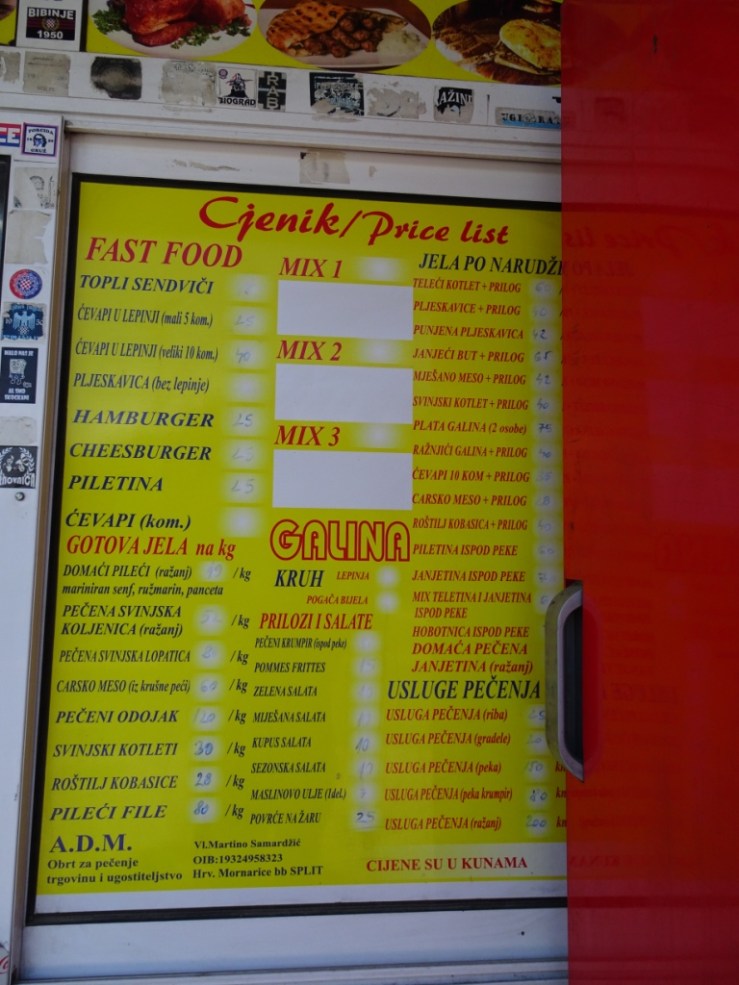 BIBINJE
1950
BIOGRAD
RAB
Cjenik/Price list
FAST FOOD
TOPLI SENDVIČI
ČEVAPI U LEPINJI (mali 5 kom.) 25
ČEVAPI U LEPINJI (veliki 10 kom.) 40
PLJESKAVICA (bez lepinje)
HAMBURGER 25
CHEESBURGER 25
PILETINA 25
ĆEVAPI (kom.)
GOTOVA JELA na kg
DOMAĆI PILEĆI (ražanj) /kg
mariniran senf, ružmarin, panceta
PEČENA SVINJSKA
KOLJENICA (ražanj) /kg
PEČENA SVINJSKA LOPATICA /kg
CARSKO MESO (iz krušne peći) 60 /kg
PEČENI ODOJAK 120 /kg
SVINJSKI KOTLETI 30 /kg
ROŠTILJ KOBASICE 28 /kg
PILEĆI FILE 80 /kg
MIX 1
MIX 2
MIX 3
GALINA
KRUH LEPINJA
POGAČA BIJELA
PRILOZI I SALATE
PEČENI KRUMPIR (ispod peke)
POMMES FRITTES 15
ZELENA SALATA
MIJEŠANA SALATA
KUPUS SALATA
SEZONSKA SALATA
MASLINOVO ULJE (1del.)
POVRĆE NA ŽARU 25
JELA PO NARUDŽ
TELEĆI KOTLET + PRILOG
PLJESKAVICE + PRILOG
PUNJENA PLJESKAVICA 42
JANJEĆI BUT + PRILOG 65
MJEŠANO MESO + PRILOG 42
SVINJSKI KOTLET + PRILOG 40
PLATA GALINA (2 osobe) 75
RAŽNJIĆI GALINA + PRILOG
ĆEVAPI 10 KOM + PRILOG
CARSKO MESO + PRILOG
ROŠTILJ KOBASICA + PRILOG
PILETINA ISPOD PEKE
JANJETINA ISPOD PEKE
MIX TELETINA I JANJETINA
ISPOD PEKE
HOBOTNICA ISPOD PEKE
DOMAĆA PEČENA
JANJETINA (ražanj)
USLUGE PEČENJA
USLUGA PEČENJA (riba)
USLUGA PEČENJA (gradele)
USLUGA PEČENJA (peka)
USLUGA PEČENJA (peka krumpir)
USLUGA PEČENJA (ražanj) 200
A.D.M.
Obrt za pečenje
trgovinu i ugostiteljstvo
Vl.Martino Samardžić
OIB:19324958323
Hrv. Mornarice bb SPLIT
CIJENE SU U KUNAMA